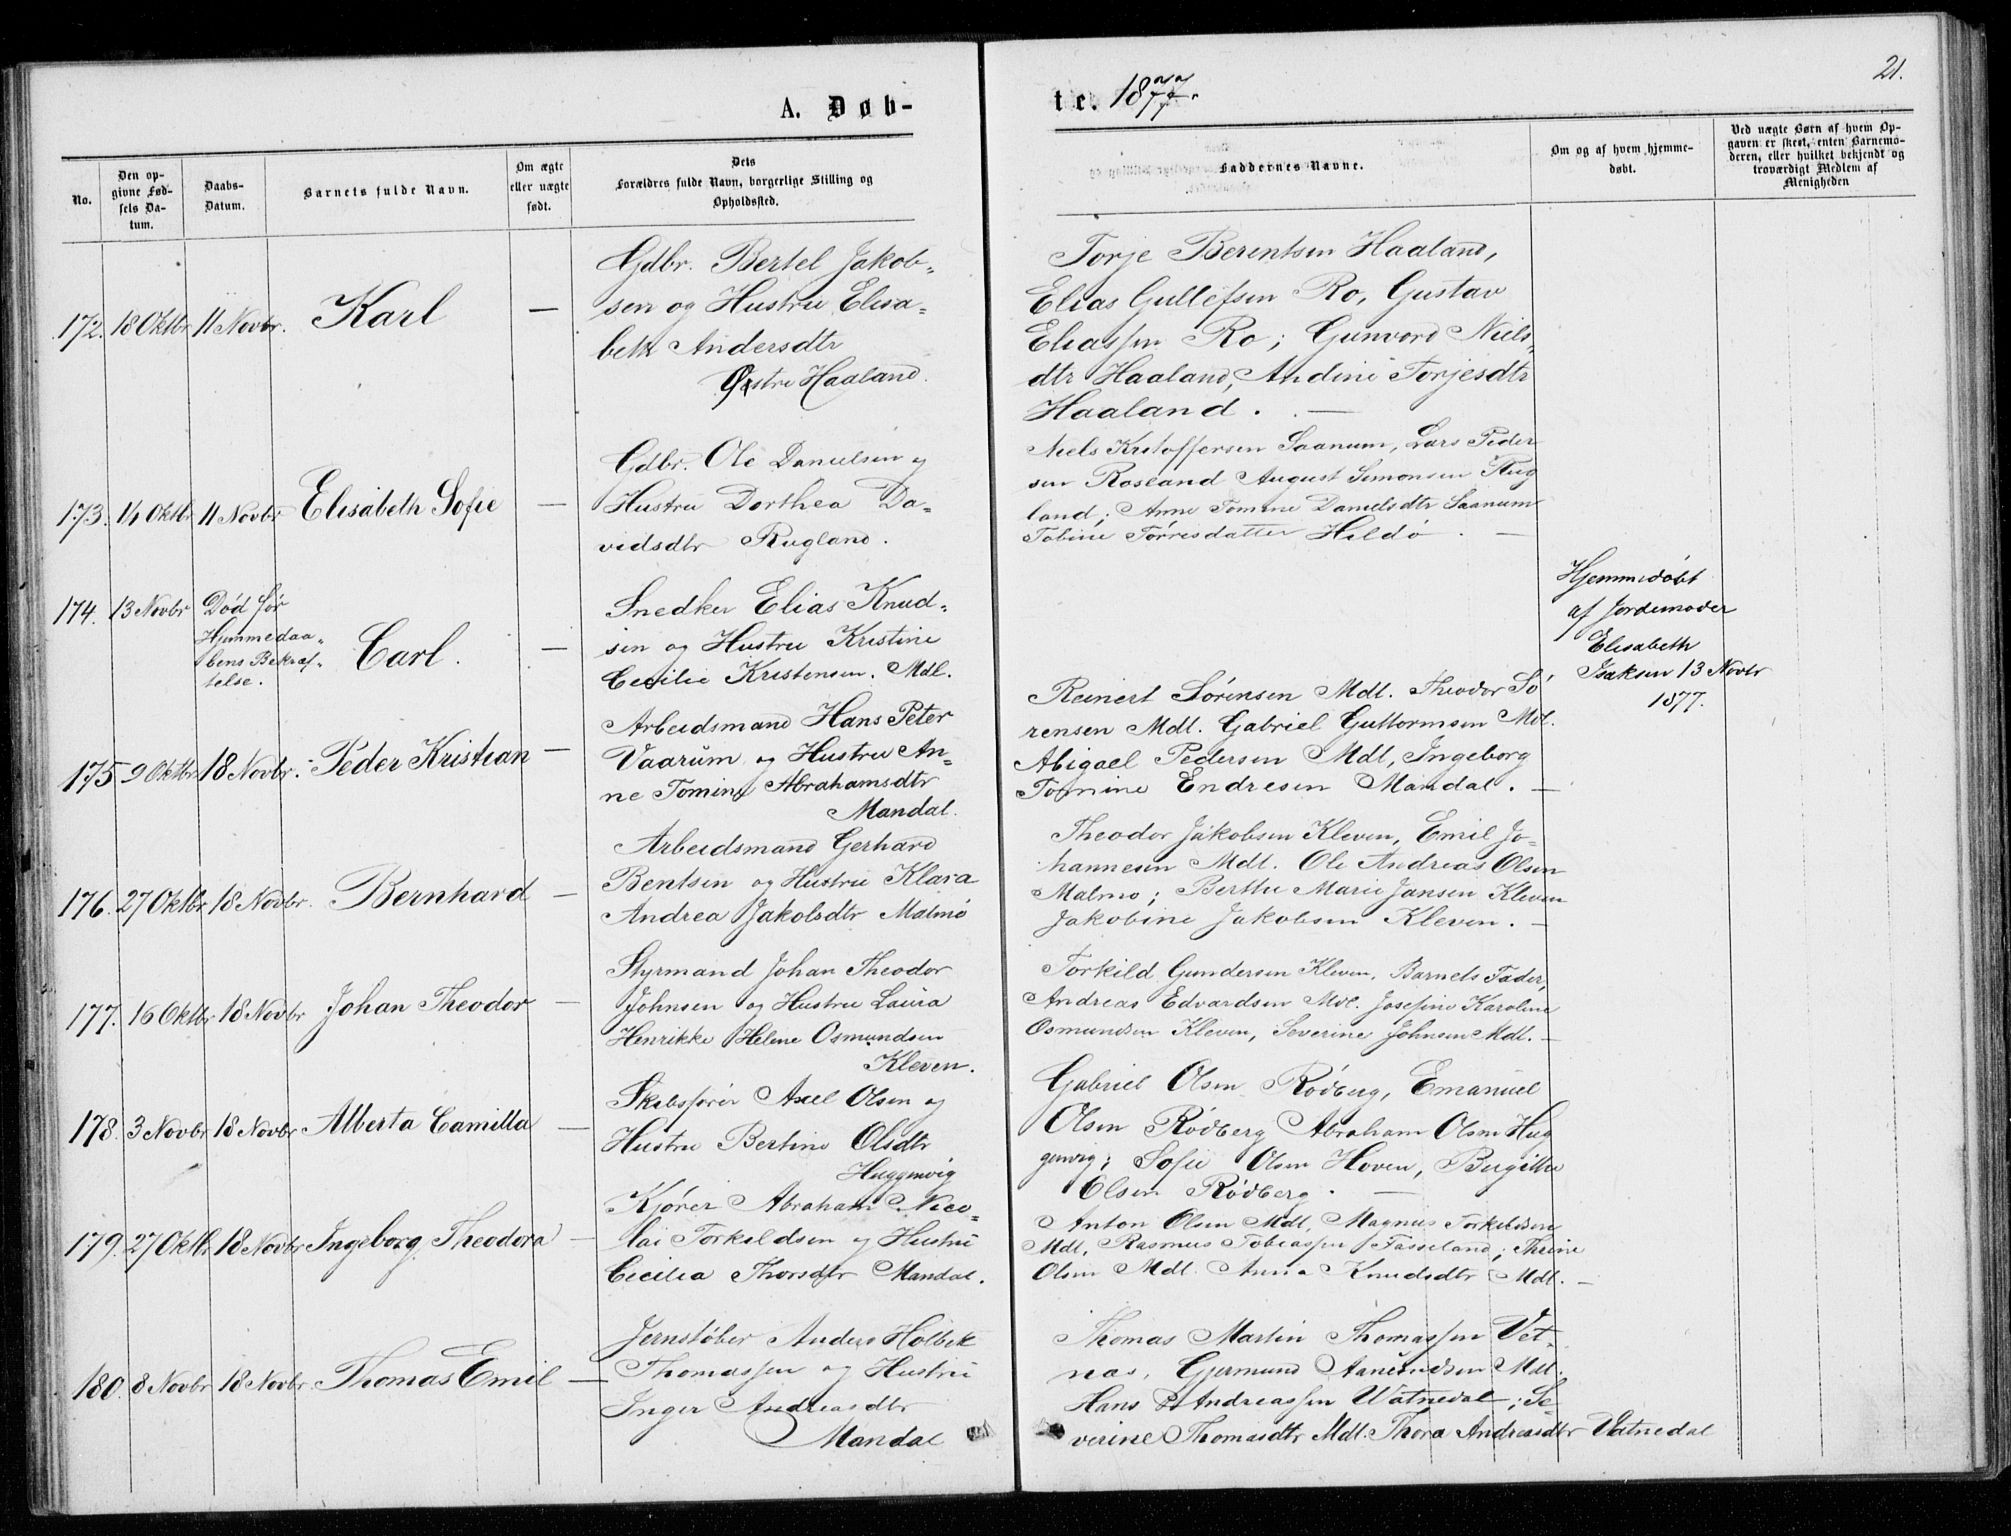 21.
A. Døb-
te. 1877.
No.
Den op-
givne Fød-
sels Da-
tum.
Daabs-
Datum.
Barnets fulde Navn.
Om ægte
eller uægte
født.
Dets
Forældres fulde Navn, borgerlige Stilling og
Opholdssted.
Faddernes Navne.
Om og af hvem hjemme-
døbt.
Ved uægte Børn af hvem Op-
gaven er skeet, enten Barnemo-
deren, eller hvilket bekjendt og
troværdigt Medlem af
Menigheden
172. 18 Oktbr 11 Novbr. Karl —
Gdbr. Bertel Jakob-
sen og Hustru Elisa-
beth Andersdtr
Østre Haaland.
Torje Berentsen Haaland,
Elias Gullefsen Ro, Gustav
Eliassen Ro; Gunvord Niels-
dtr Haaland, Andine Torjesdtr
Haaland. —
173. 14 Oktbr 11 Novbr Elisabeth Sofie —
Gdbr. Ole Danielsen og
Hustru Dorthea Da-
vidsdtr Rugland.
Niels Kristoffersen Saanum, Lars Peder
sen Rosland August Simonsen Rug
land; Anne Tomine Danielsdtr Saanum
Tobine Tørresdatter Hildø. —
174. 13 Novbr Død før
Hjemmedaa-
bens Bekræf-
telse.
Carl. —
Snedker Elias Knud-
sen og Hustru Kristine
Cecilie Kristensen. Mdl.
Hjemmedøbt
af Jordemoder
Elisabeth
Isaksen 13 Novbr
1877.
175 9 Oktbr 18 Novbr. Peder Kristian —
Arbeidsmand Hans Peter
Vaarum og Hustru An-
ne Tomine Abrahamsdtr
Mandal.
Reinert Sørensen Mdl. Theodor Sø
rensen Mdl. Gabriel Guttormsen Mdl.
Abigael Pedersen Mdl, Ingeborg
Tomine Endresen Mandal. —
176. 27 Oktbr 18 Novbr. Bernhard —
Arbeidsmand Gerhard
Bentsen og Hustru Klara
Andrea Jakobsdtr Malmø
Theodor Jakobsen Kleven, Emil Jo-
hannesen Mdl. Ole Andreas Olsen
Malmø; Berthe Marie Jansen Kleven
Jakobine Jakobsen Kleven. —
177. 16 Oktbr 18 Novbr Johan Theodor —
Styrmand Johan Theodor
Johnsen og Hustru Laura
Henrikke Helene Osmundsen
Kleven.
Torkild Gundersen Kleven, Barnets Fader,
Andreas Edvardsen Mdl. Josefine Karoline
Osmundsen Kleven, Severine Johnsen Mdl. —
178. 3 Novbr 18 Novbr Alberta Camilla —
Skibsfører Axel Olsen og
Hustru Bertine Olsdtr
Huggenvig
Gabriel Olsen Rødberg, Emanuel
Olsen Rødberg Abraham Olsen Hug
genvig; Sofie Olsen Hoven, Birgitte
Olsen Rødberg. —
179. 27 Oktbr 18 Novbr Ingeborg Theodora —
Kjører Abraham Nico-
lai Torkildsen og Hustru
Cecilia Thorsdtr Mandal.
Anton Olsen Mdl, Magnus Torkildsen
Mdl, Rasmus Tobiassen Fasseland; Thrine
Olsen Mdl. Anna Knudsdtr Mdl. —
180. 8 Novbr 18 Novbr. Thomas Emil —
Jernstøber Anders Holbek
Thomassen og Hustru
Inger Andreasdtr
Mandal
Thomas Martin Thomassen Vet-
nas, Gjermund Aanensen Mdl.
Hans Andreassen Vatnedal; Se-
verine Thomasdtr Mdl. Thora Andreasdtr Vatnedal